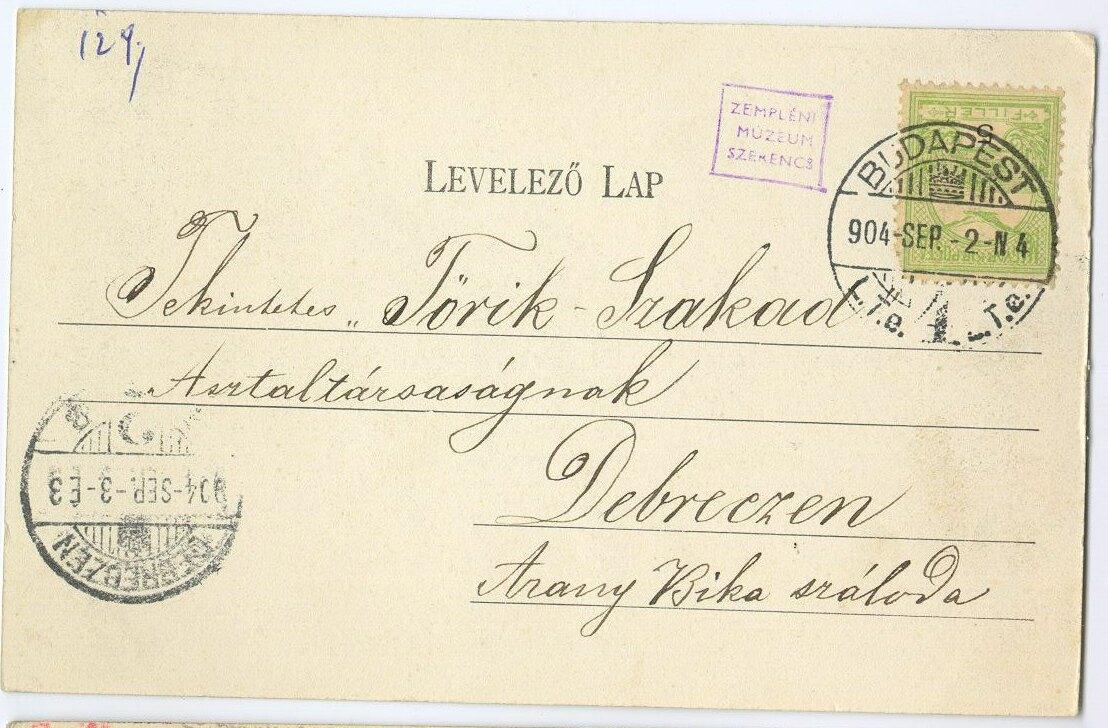 129,
ZEMPLÉNI
MÚZEUM
SZERENCS
FILLÉR
BUDAPEST
904-SEP.-2-N4
T.e. T.e.
LEVELEZŐ LAP
Tekintetes „Törik-Szakad
Asztaltársaságnak
Debreczen
Arany Bika szálloda
904-SEP.-3-É3
DEBRECZEN